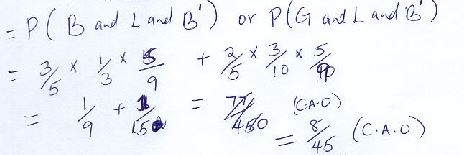 = P ( B and L and B' ) or P(G and L and B')
= 3/5 × 1/3 × 5/9 + 2/5 × 3/10 × 5/9
= 1/9 + 1/15 = 77/450 (C.A.O)
= 8/45 (C.A.O)